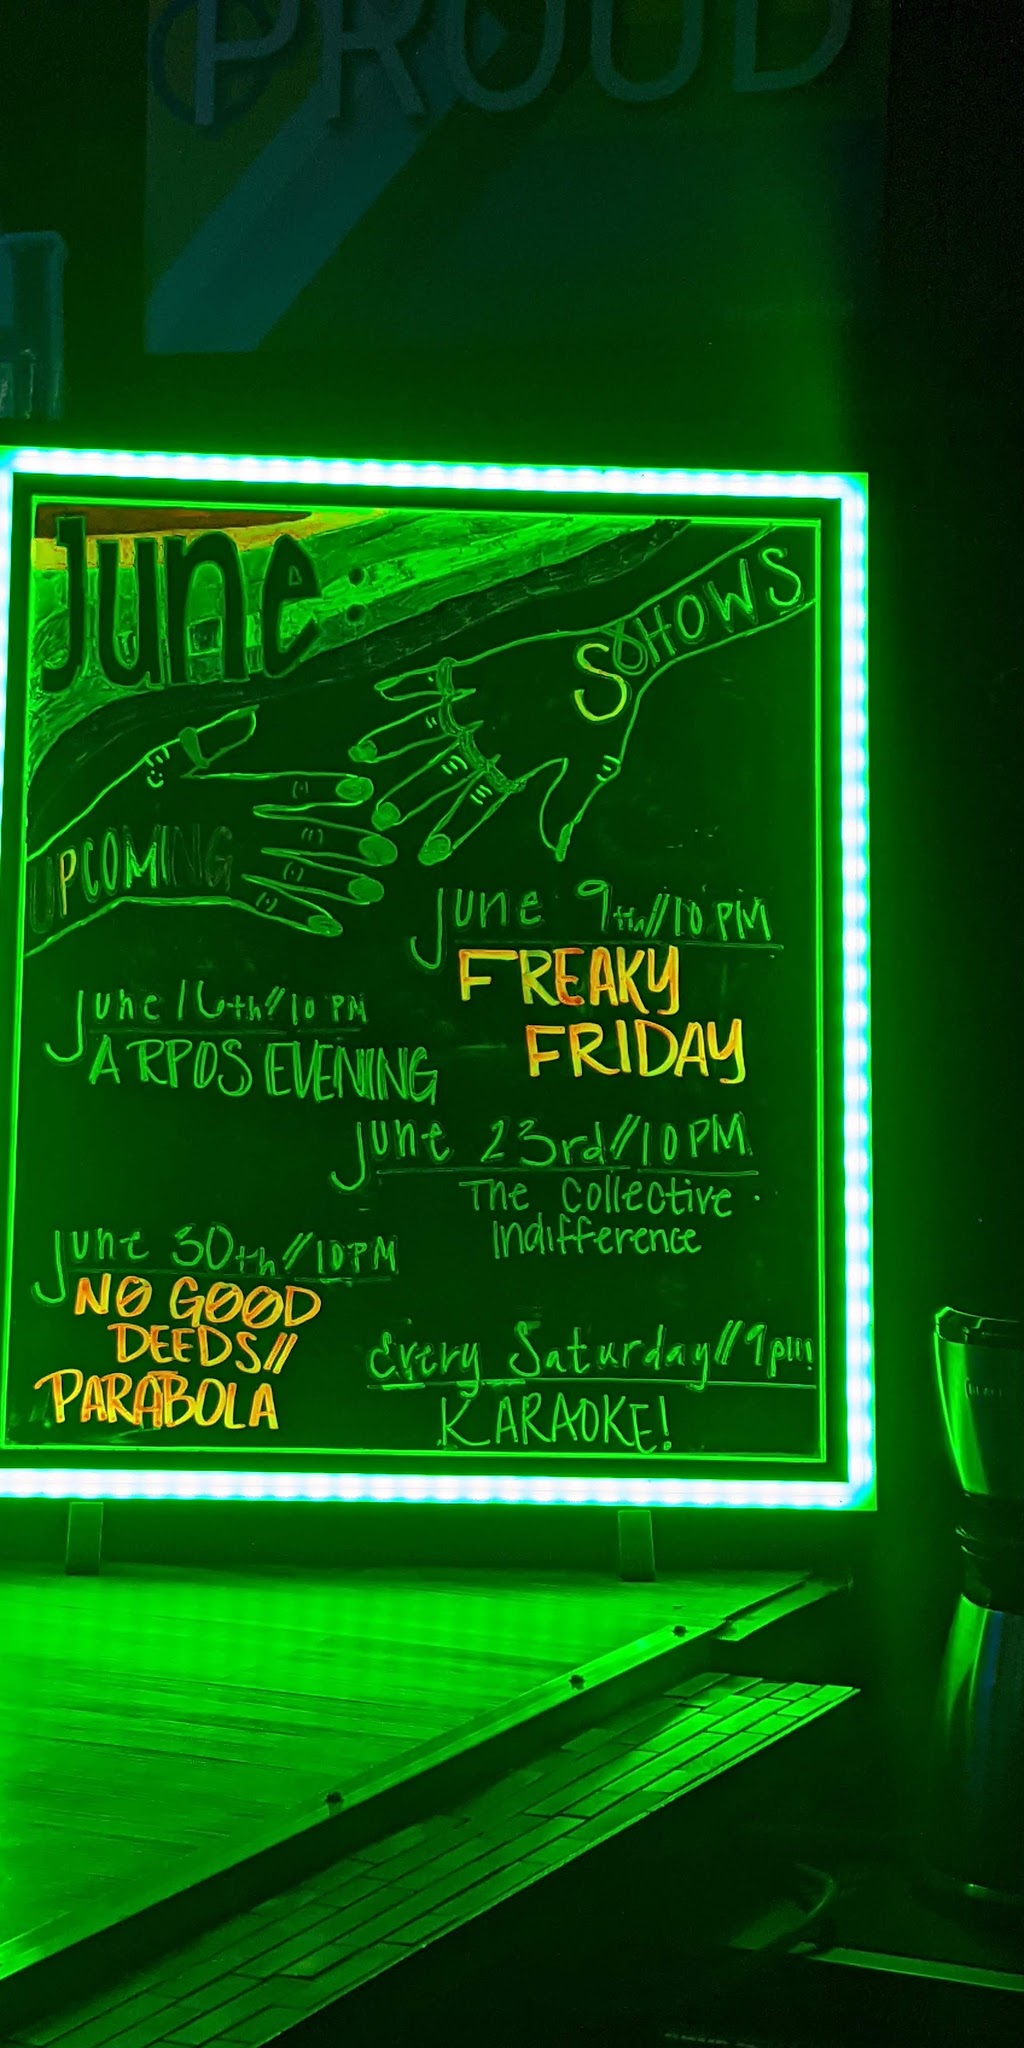 PROUD
June:
SHOWS
UPCOMING
June 9th//10 PM
FREAKY
FRIDAY
June 16th//10 PM
ARPOS EVENING
June 23rd//10PM
The Collective
Indifference
June 30th//10PM
NO GOOD
DEEDS//
PARABOLA
Every Saturday//9pm
KARAOKE!